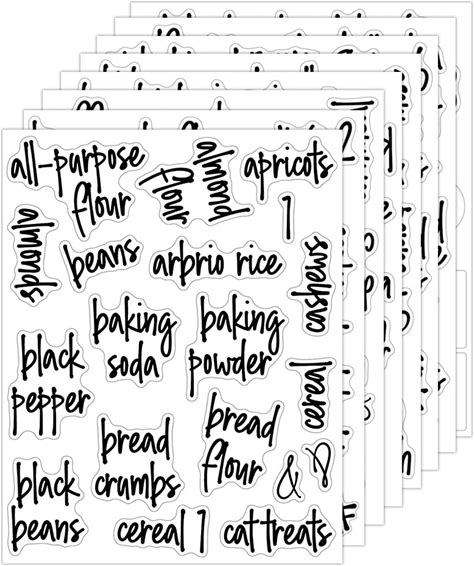 all-purpose
flour
almond
flour
apricots
1
almonds
beans
arbrio rice
cashews
baking
soda
baking
powder
black
pepper
cereal
bread
crumbs
bread
flour
& D
black
beans
cereal 1
cat treats
2
F